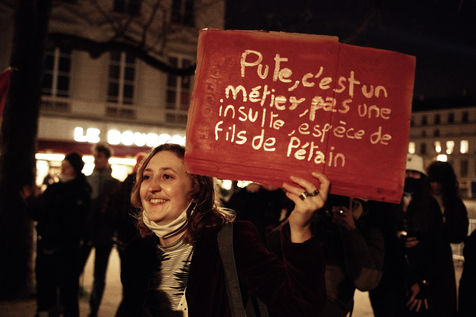 Pute, c'est un
métier, pas une
insulte, espèce de
fils de Pétain
LE BOURBON